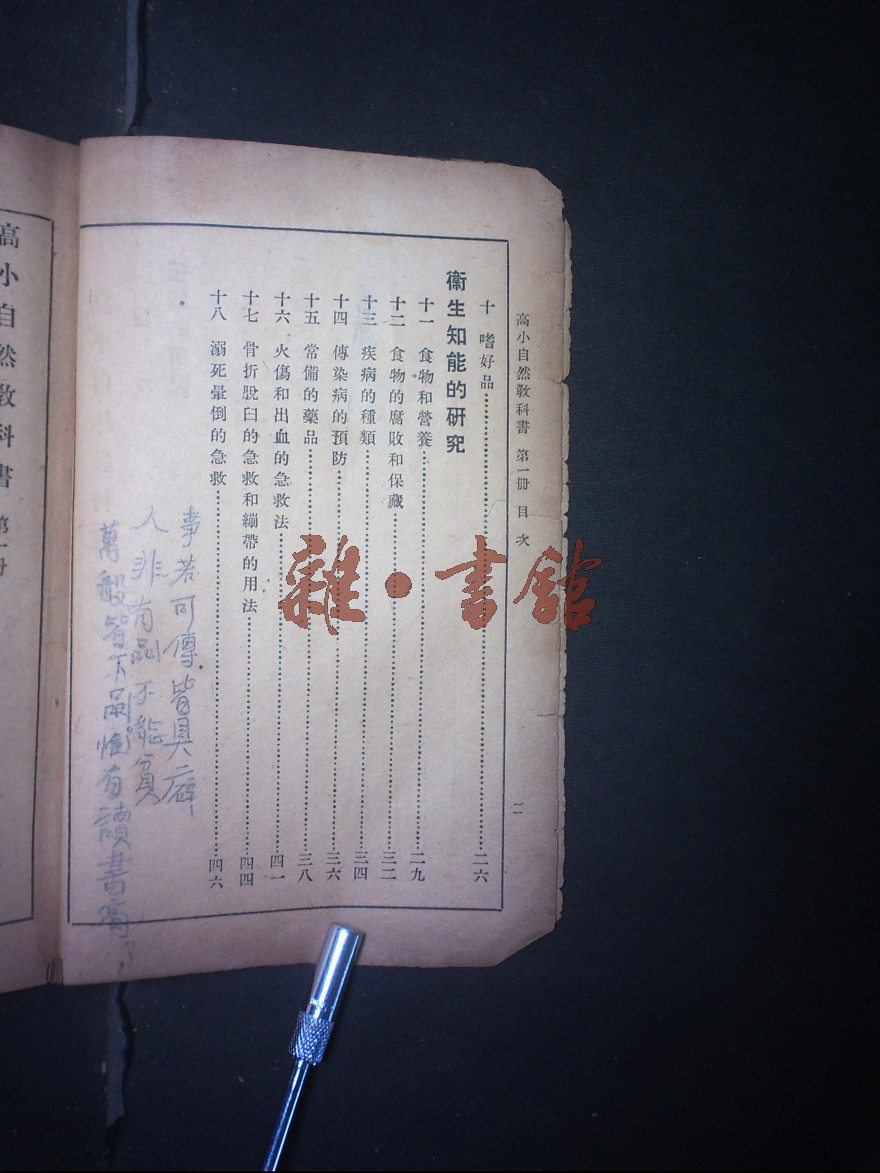 高小自然教科書 第一冊 目次
二
十 嗜好品……二六
衞生知能的研究
十一 食物和營養……二九
十二 食物的腐敗和保藏……三二
十三 疾病的種類……三四
十四 傳染病的預防……三六
十五 常備的藥品……三八
十六 火傷和出血的急救法……四一
十七 骨折脫臼的急救和繃帶的用法……四四
十八 溺死暈倒的急救……四六
事若可傳皆具癖
人非有品不能貧
萬般皆下品惟有讀書高
高小自然教科書 第一冊
雜·書館